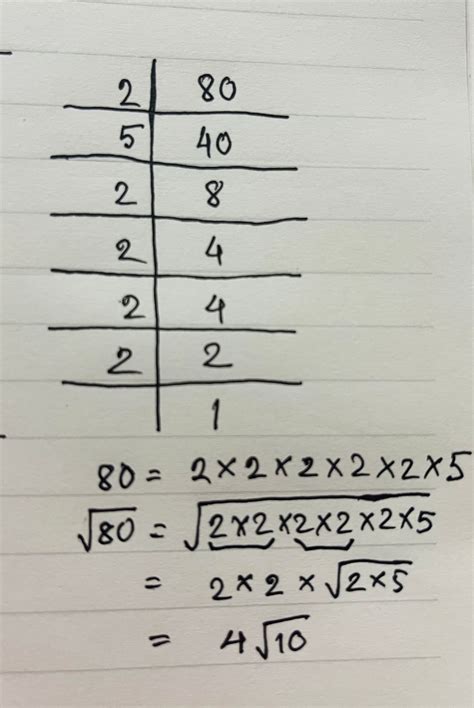 2 | 80
5 | 40
2 | 8
2 | 4
2 | 4
2 | 2
| 1
80 = 2 × 2 × 2 × 2 × 2 × 5
√80 = √2 × 2 × 2 × 2 × 2 × 5
= 2 × 2 × √2 × 5
= 4√10